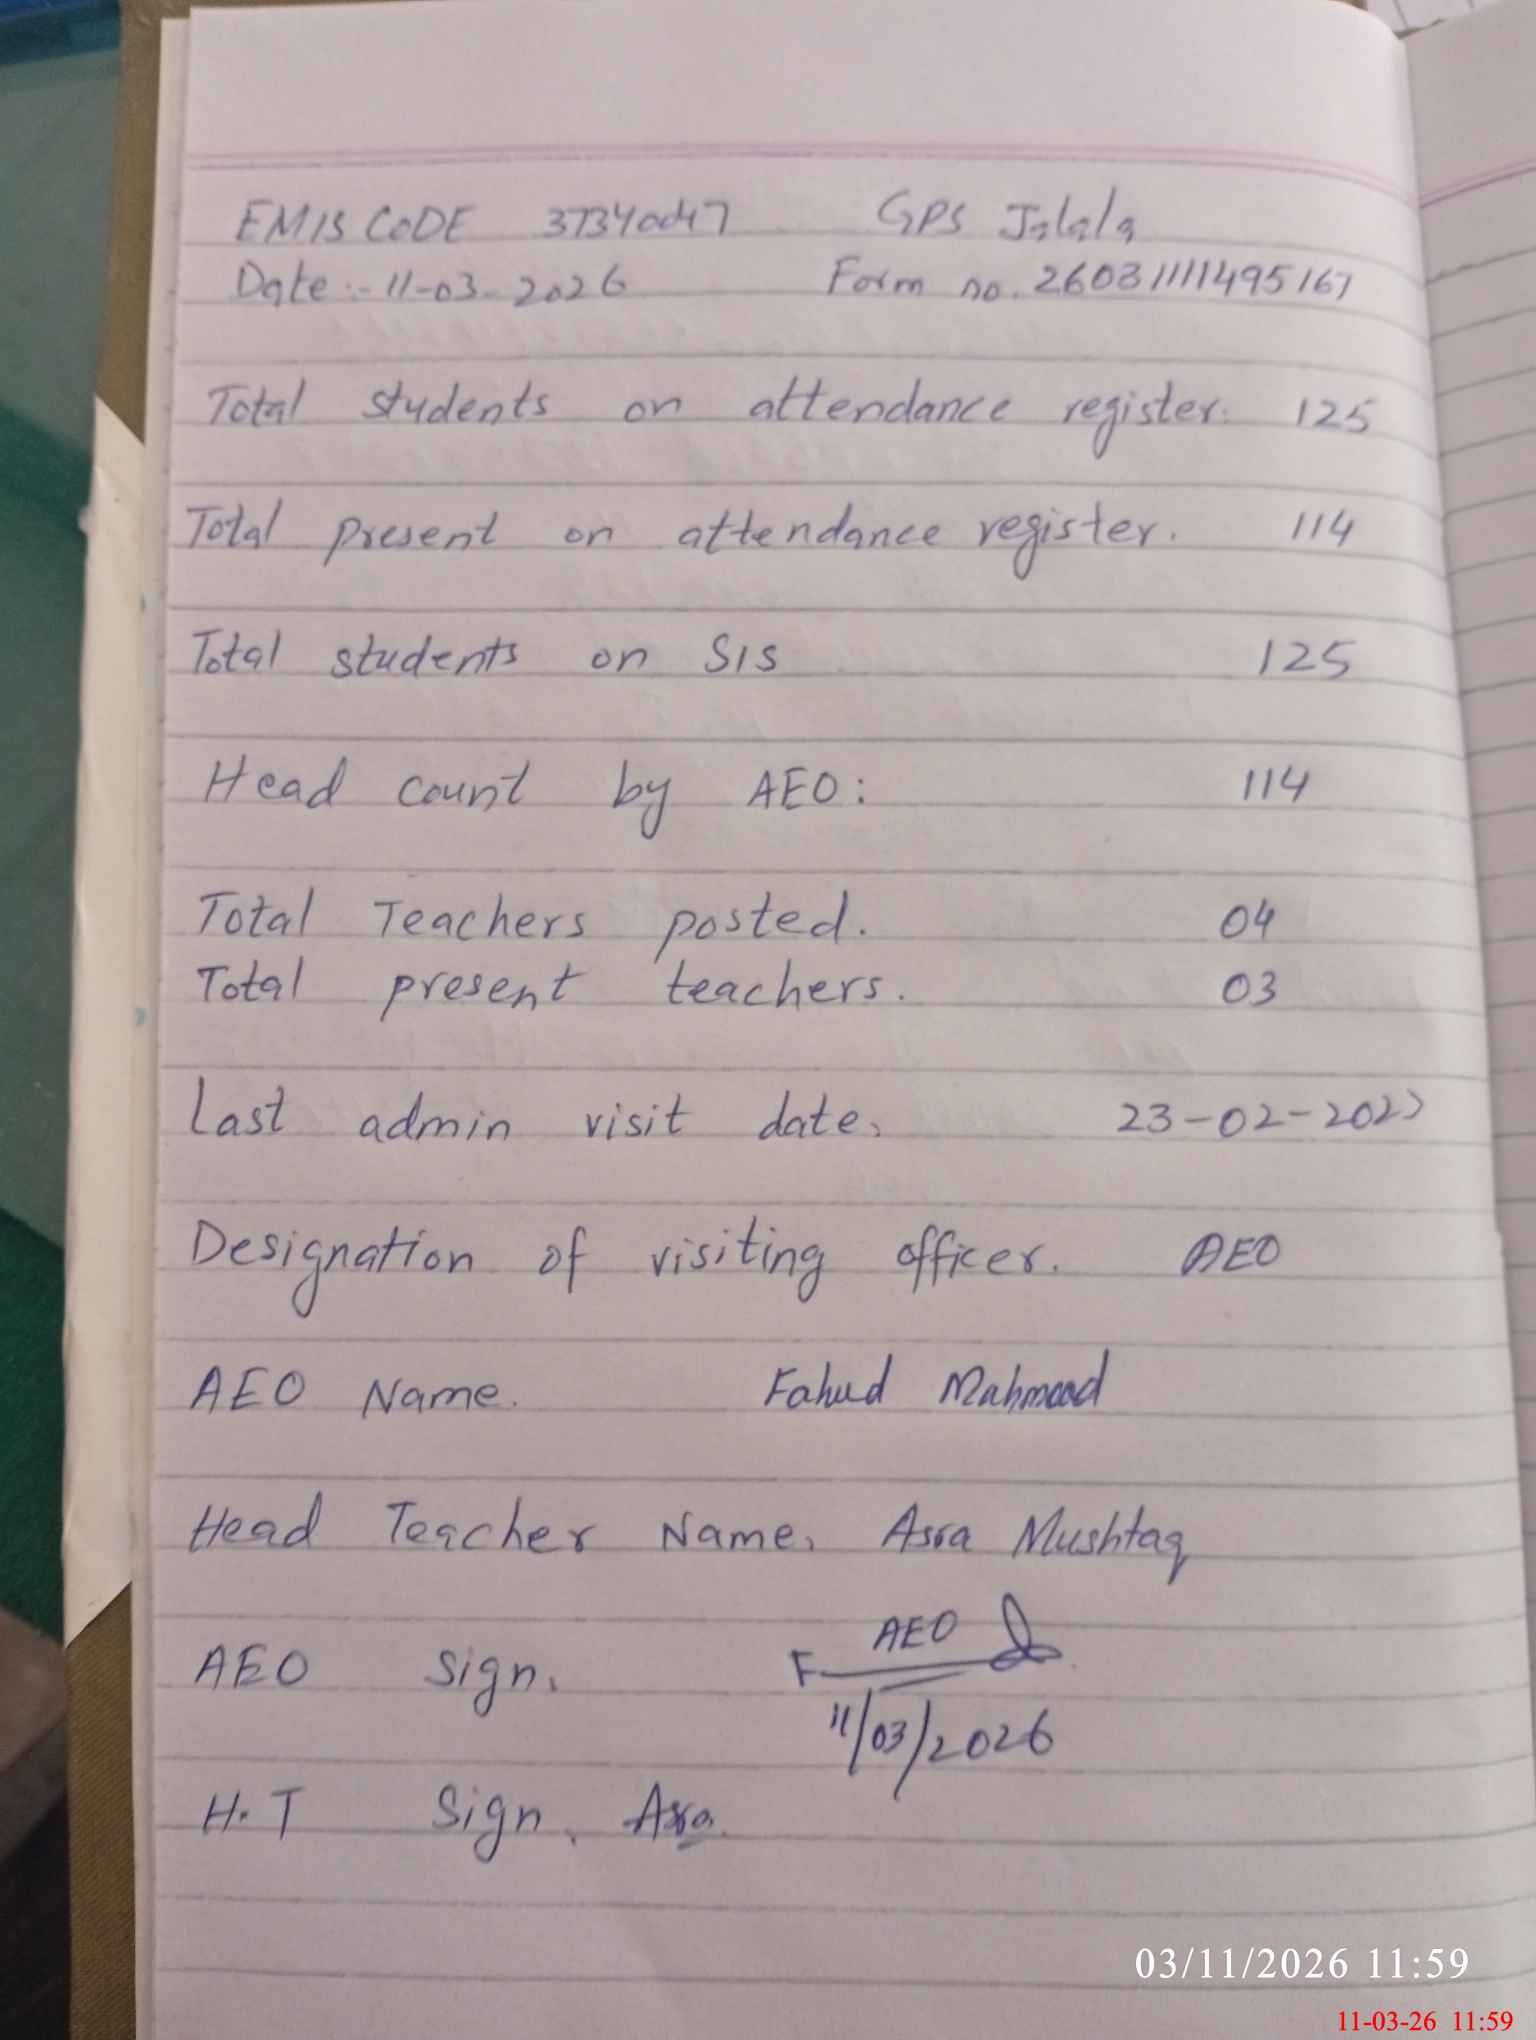 EMIS CODE 37340047 GPS Jalala
Date :- 11-03-2026 Form no. 26031111495167
Total students on attendance register: 125
Total present on attendance register. 114
Total students on SIS 125
Head count by AEO: 114
Total Teachers posted. 04
Total present teachers. 03
Last admin visit date, 23-02-
Designation of visiting officer. AEO
AEO Name. Fahud Mahmood
Head Teacher Name, Asra Mushtaq
AEO Sign. AEO
11/03/2026
H.T Sign. Asra
03/11/2026 11:59
11-03-26 11:59